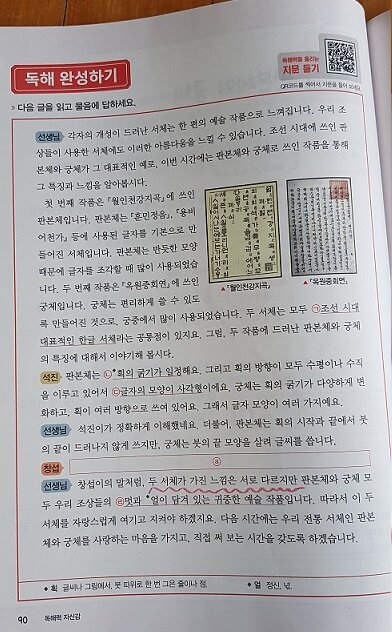 독해력을 올리는
지문 듣기
QR코드를 찍어서 지문을 들어 보세요.
독해 완성하기
> 다음 글을 읽고 물음에 답하세요.
선생님 각자의 개성이 드러난 서체는 한 편의 예술 작품으로 느껴집니다. 우리 조
상들이 사용한 서체에도 이러한 아름다움을 느낄 수 있습니다. 조선 시대에 쓰인 판
본체와 궁체가 그 대표적인 예로, 이번 시간에는 판본체와 궁체로 쓰인 작품을 통해
그 특징과 느낌을 알아봅시다.
첫 번째 작품은 『월인천강지곡』에 쓰인
판본체입니다. 판본체는 『훈민정음』, 『용비
어천가』 등에 사용된 글자를 기본으로 만
들어진 서체입니다. 판본체는 반듯한 모양
때문에 글자를 조각할 때 많이 사용되었습
니다. 두 번째 작품은 『옥원중회연』에 쓰인
궁체입니다. 궁체는 편리하게 쓸 수 있도
▲『월인천강지곡』
▲『옥원중회연』
록 만들어진 것으로, 궁중에서 많이 사용되었습니다. 두 서체는 모두 ㉠조선 시대
대표적인 한글 서체라는 공통점이 있지요. 그럼, 두 작품에 드러난 판본체와 궁체
의 특징에 대해서 이야기해 봅시다.
석진 판본체는 ㉡*획의 굵기가 일정해요. 그리고 획의 방향이 모두 수평이나 수직
을 이루고 있어서 ㉢글자의 모양이 사각형이에요. 궁체는 획의 굵기가 다양하게 변
화하고, 획이 여러 방향으로 쓰여 있어요. 그래서 글자 모양이 여러 가지예요.
선생님 석진이가 정확하게 이해했네요. 더불어, 판본체는 획의 시작과 끝에서 붓
의 끝이 드러나지 않게 쓰지만, 궁체는 붓의 끝 모양을 살려 글씨를 씁니다.
창섭 ⓐ
선생님 창섭이의 말처럼, 두 서체가 가진 느낌은 서로 다르지만 판본체와 궁체 모
두 우리 조상들의 ㉣멋과 *얼이 담겨 있는 귀중한 예술 작품입니다. 따라서 이 두
서체를 자랑스럽게 여기고 지켜야 하겠지요. 다음 시간에는 우리 전통 서체인 판본
체와 궁체를 사랑하는 마음을 가지고, 직접 써 보는 시간을 갖도록 하겠습니다.
* 획 글씨나 그림에서, 붓 따위로 한 번 그은 줄이나 점.
* 얼 정신, 넋.
90 독해력 자신감